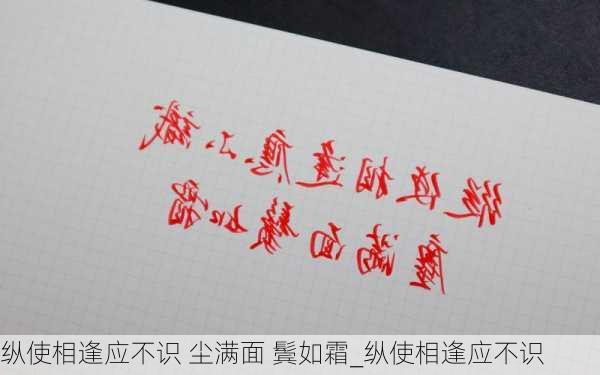 縱使相逢應不識
塵滿面鬢如霜
纵使相逢应不识 尘满面 鬓如霜_纵使相逢应不识